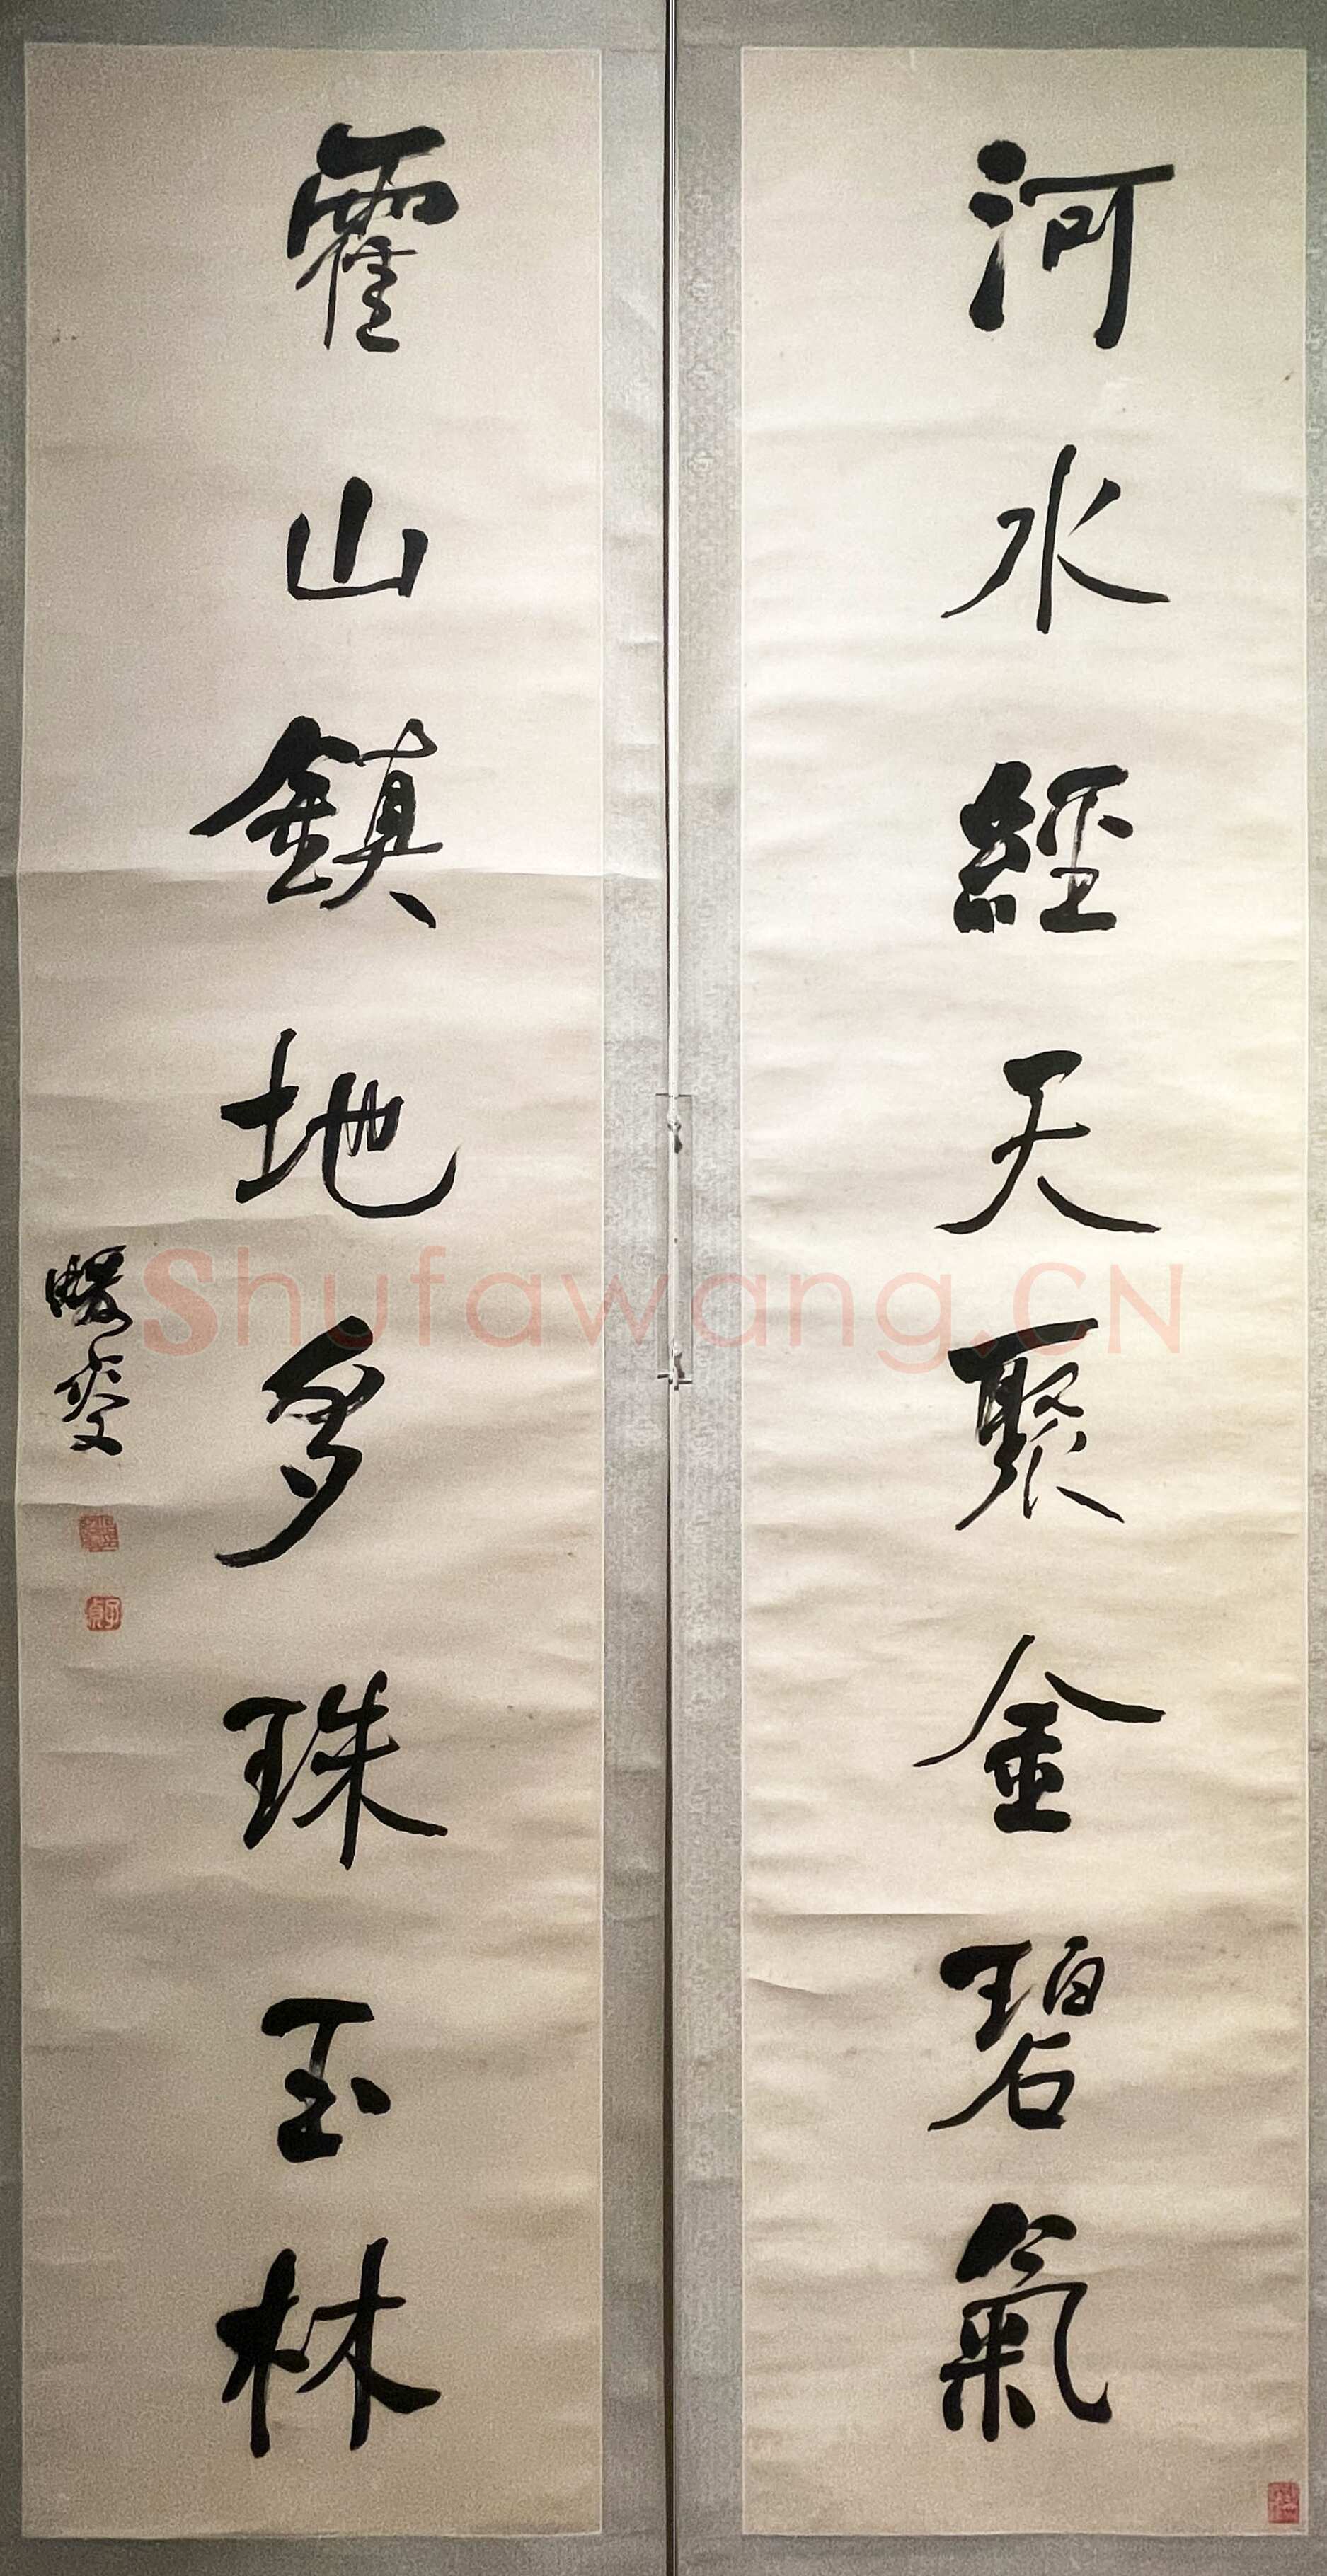 河水經天聚金碧氣
霍山鎮地多珠玉林
蝯叟
子貞
Shufawang.CN